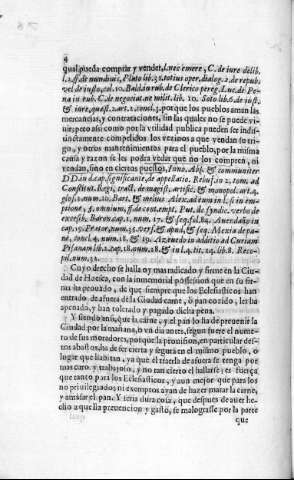 4
qual pueda comprar y vender, l. nec emere, C. de iure delib.
l. 2. ff. de nundinis, Pluto lib. 35. totius oper. dialog. 2. de repub.
vel de iusto, col. 10. Bald. in rub. C. de
na in rub. C. de negotiat. ne milit. lib. 10. Soto lib. 6. de iust.
& iure, quæst. 2. art. 2. concl. 3. porque los pueblos aman las
mercancias, y contrataciones, sin las quales no se puede vi-
uir; pero assi como por la vtilidad publica pueden ser indi-
stinctamente compelidos los vezinos a que vendan su tri-
go, y otros mantenimientos para el pueblo, por la misma
causa y razon se les podra vedar que no los compren, ni
vendan, sino en ciertos puestos, Inno. Abb. & communiter
DD. in d. cap. significante, de appellatio.
Constitut. Regi, tract. de magist. artific. & monopol. art. 4.
glos. 2. num. 20. Bart. & melius Alex. ad eum in l. si in em-
ptione, §. omnium, ff. de contr. empt. Put. de syndic. verbo de
excessib. Baron cap. 1. num. 17. & seq. fol. 84. Auendaño in
cap. 19. Prætor. num. 35. vers. & apud, & seq. Mexia de pa-
ne, concl. 4. num. 18. & 19. Azeuedo in additio ad Curiam
Pisanam lib. 2. cap. 18. num. 28. & in l. 4. tit. 14. lib. 8. Reco-
pil. num. 32.
Cuyo derecho se halla oy mas radicado y firme en la Ciu-
dad de Huesca, con la immemorial possession que en su fir-
ma ha prouado, de que siempre que los Eclesiasticos han
entrado de afuera de la Ciudad carne, ò pan cozido, les ha
apenado, y han tolerado y pagado dicha pena.
Y siendo ansi, que la carne, y el pan lo ha de preuenir la
Ciudad por la mañana, ò vn dia antes, segun fuere el nume-
ro de sus moradores, porque la prouision, en particular des-
tos abastos, ha de ser cierta y segura en el mismo pueblo, ò
lugar que habitan, ya que el traerla de afuera se tenga por
mas caro y trabajoso, y no tan cierto el hallarse; es fuerça
que tanto para los Eclesiasticos, y aun mejor que para los
no priuilegiados, ni exemptos ayan de hazer matar la carne,
y amassar el pan. Y seria dura cosa, que despues de auer he-
cho a que lla preuencion y gasto, se malograsse por la parte
que